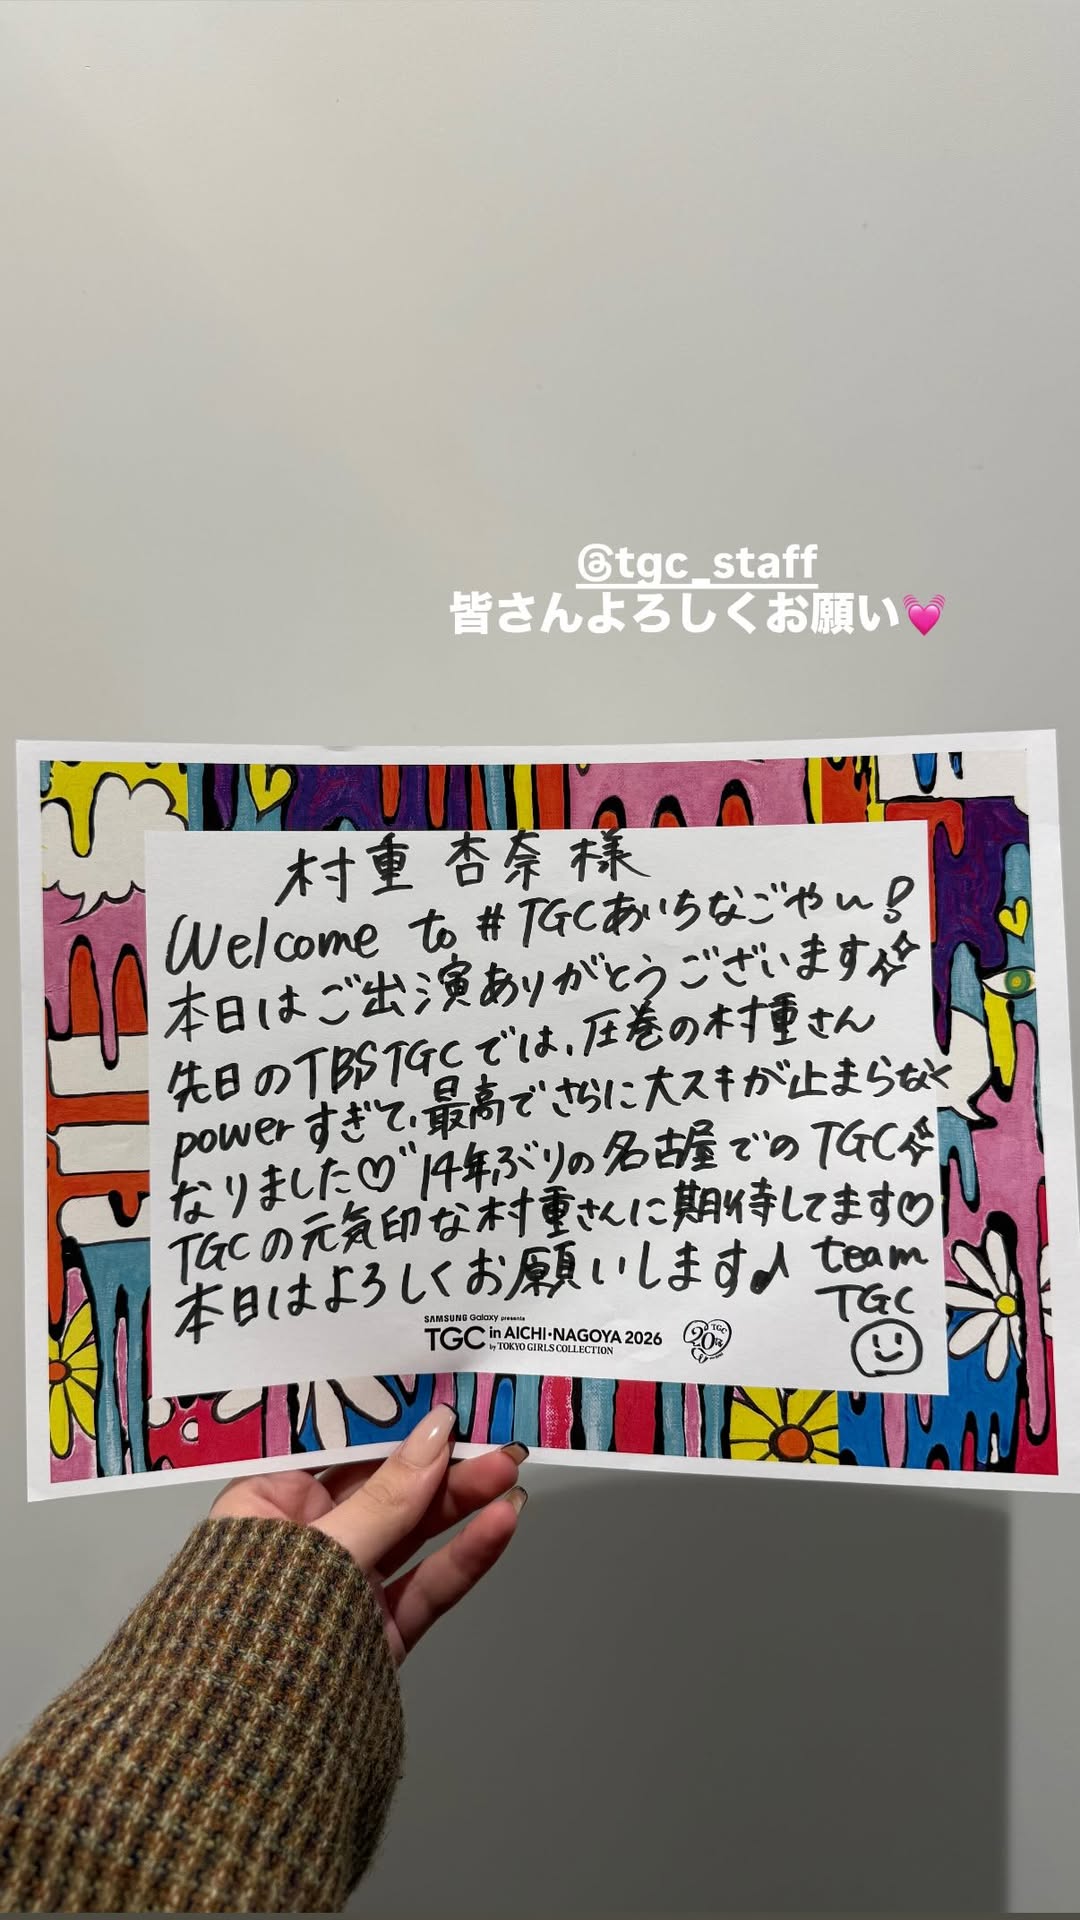 @tgc_staff
皆さんよろしくお願い💓
村重 杏奈 様
Welcome to #TGCあいちなごやぃ!
本日はご出演ありがとうございます✨
先日のTBSTGCでは、圧巻の村重さん
powerすぎて、最高でさらに大スキが止まらなく
なりました♡" 14年ぶりの名古屋でのTGC✨
TGCの元気印な村重さんに期待してます♡
本日はよろしくお願いします♪ team
TGC
SAMSUNG Galaxy presents
TGC in AICHI・NAGOYA 2026
by TOKYO GIRLS COLLECTION
TGC
20th